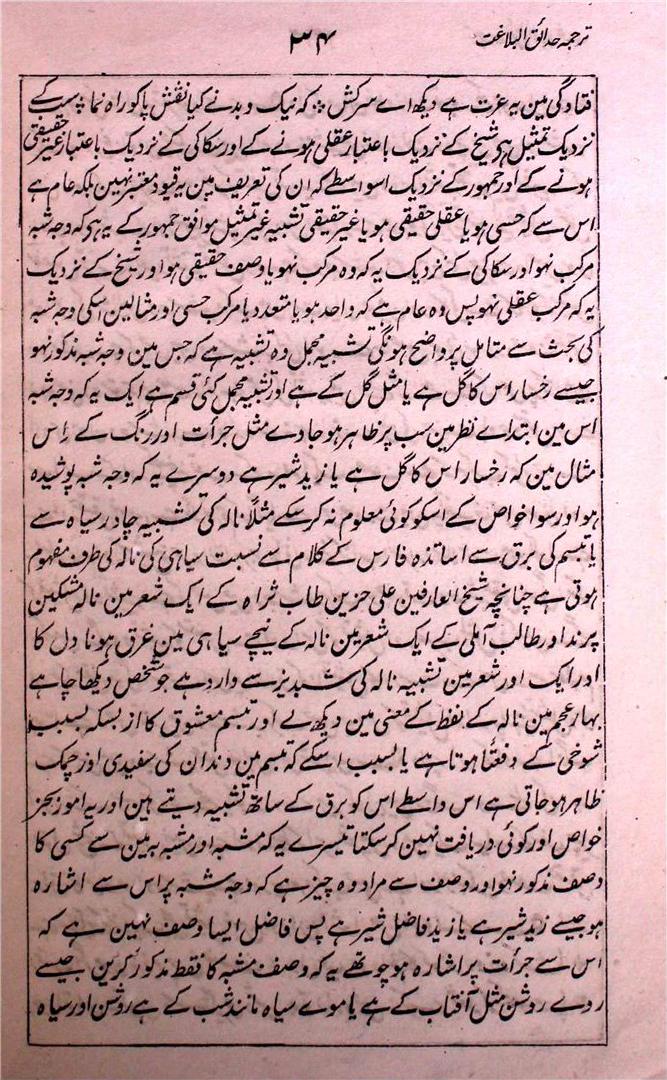 ترجمہ حدائق البلاغت
۳۴
فتادگی مین یہ عزت ہے دیکھ اے سرکش ؞ کہ نیک و بد نے کیا نقش پا کو راہ نما ؞ سب کے
نزدیک تمثیل ہی شیخ کے نزدیک باعتبار عقلی ہونے کے اور سکاکی کے نزدیک باعتبار غیر حقیقی
ہونے کے اور جمہور کے نزدیک اسواسطے کہ ان کی تعریف مین یہ قیود معتبر نہین بلکہ عام ہے
اس سے کہ حسی ہو یا عقلی حقیقی ہو یا غیر حقیقی تشبیہ غیر تمثیل موافق جمہور کے یہ ہی کہ وجہ شبہ
مرکب نہو اور سکاکی کے نزدیک یہ کہ وہ مرکب نہو یا وصف حقیقی ہو اور شیخ کے نزدیک
یہ کہ مرکب عقلی نہو پس وہ عام ہے کہ واحد ہو یا متعدد یا مرکب حسی اور مثالین اسکی وجہ شبہ
کی بحث سے متامل پر واضح ہونگی تشبیہ مجمل وہ تشبیہ ہے کہ جس مین وجہ شبہ مذکور نہو
جیسے رخسار اس کا گل ہے یا مثل گل کے ہے اور تشبیہ مجمل کئی قسم ہے ایک یہ کہ وجہ شبہ
اس مین ابتداے نظر مین سب پر ظاہر ہو جاوے مثل جرأت اور رنگ کے اس
مثال مین کہ رخسار اس کا گل ہے یا زید شیر ہے دوسرے یہ کہ وجہ شبہ پوشیدہ
ہو اور سوا خواص کے اسکو کوئی معلوم نہ کر سکے مثلاً نالہ کی تشبیہ چادر سیاہ سے
یا تبسم کی برق سے اساتذہ فارس کے کلام سے نسبت سیاہی کی نالہ کی طرف مفہوم
ہوتی ہے چنانچہ شیخ العارفین علی حزین طاب ثراہ کے ایک شعر مین نالہ مشکین
پرند اور طالب آملی کے ایک شعر مین نالہ کے نیچے سیاہی مین غرق ہونا دل کا
اور ایک اور شعر مین تشبیہ نالہ کی شبدیز سے وارد ہے جو شخص دیکھا چاہے
بہار عجم مین نالہ کے لفظ کے معنی مین دیکھ لے اور تبسم معشوق کا ازبسکہ بسبب
شوخی کے دفعتاً ہوتا ہے یا بسبب اسکے کہ تبسم مین دندان کی سفیدی اور چمک
ظاہر ہو جاتی ہے اس واسطے اس کو برق کے ساتھ تشبیہ دیتے ہین اور یہ امور بجز
خواص اور کوئی دریافت نہین کر سکتا تیسرے یہ کہ مشبہ اور مشبہ بہ مین سے کسی کا
وصف مذکور نہو اور وصف سے مراد وہ چیز ہے کہ وجہ شبہ پر اس سے اشارہ
ہو جیسے زید شیر ہے یا زید فاضل شیر ہے پس فاضل ایسا وصف نہین ہے کہ
اس سے جرأت پر اشارہ ہو چوتھے یہ کہ وصف مشبہ کا فقط مذکور کرین جیسے
روے روشن مثل آفتاب کے ہے یا موے سیاہ مانند شب کے ہے روشن اور سیاہ